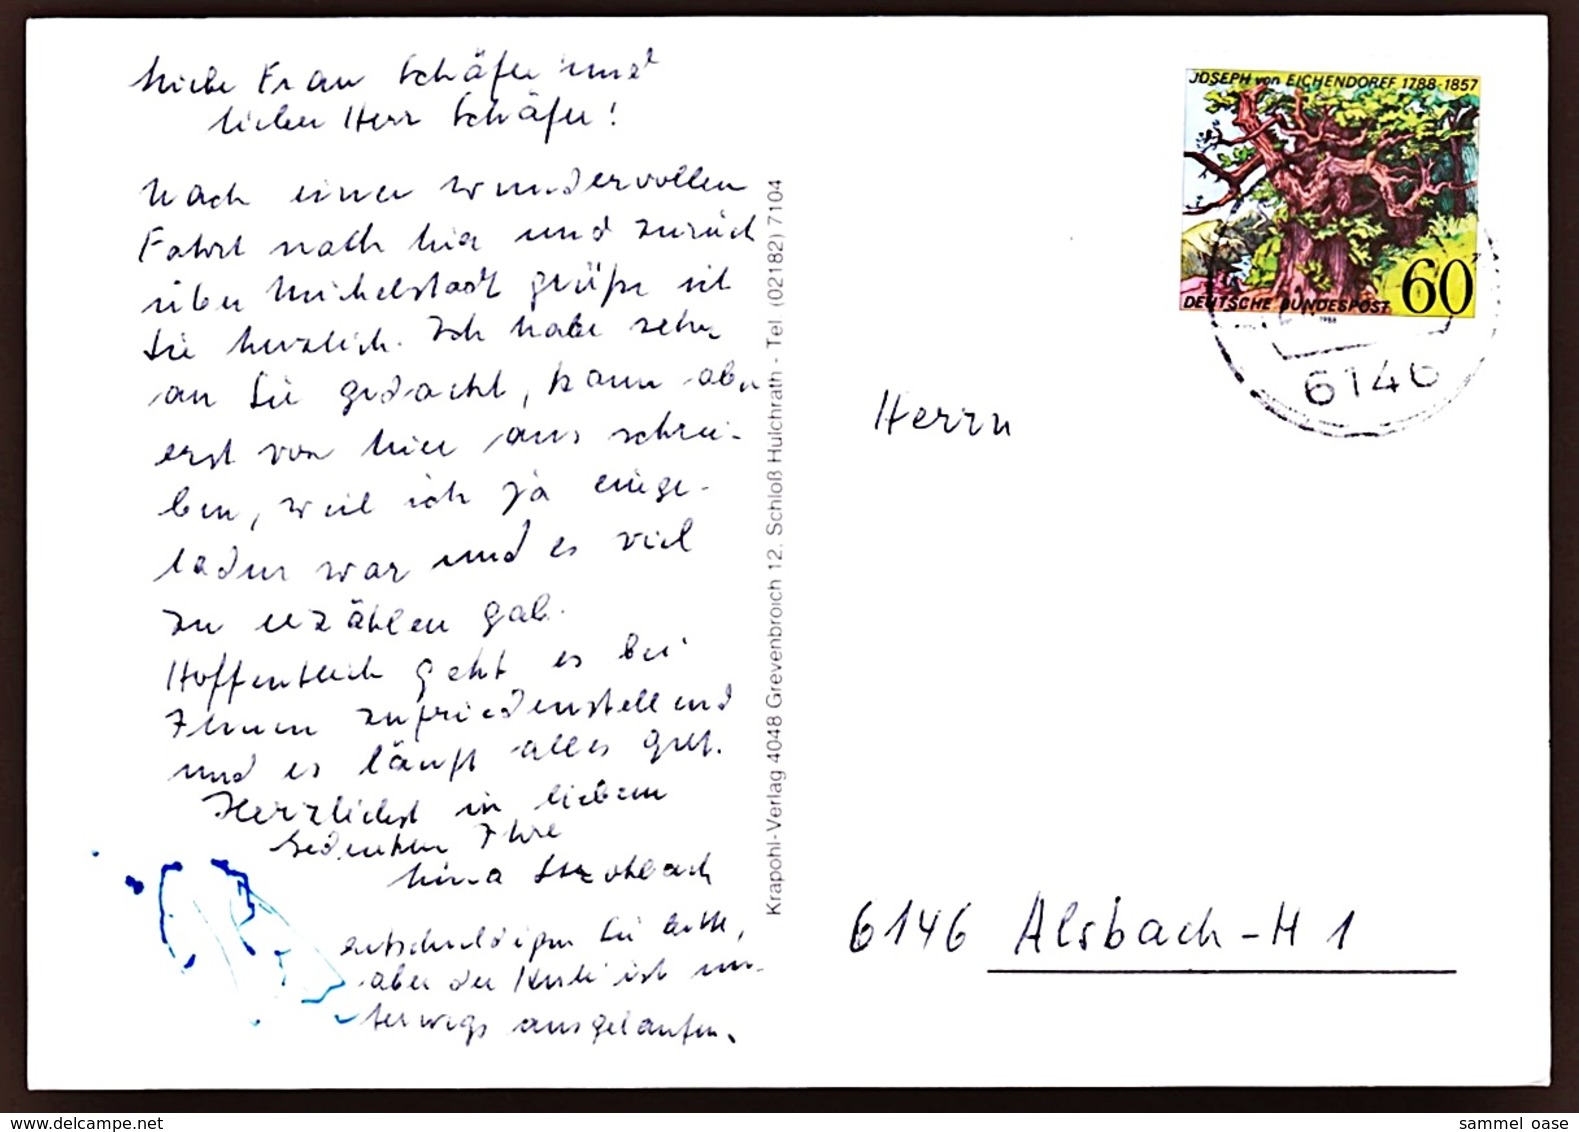 Liebe Frau Schäfer und
lieber Herr Schäfer!
Nach einer wundervollen
Fahrt nach hier und zurück
über Michelstadt grüße ich
Sie herzlich. Ich habe sehr
an Sie gedacht, kann aber
erst von hier aus schrei-
ben, weil ich ja einge-
laden war und es viel
zu erzählen gab.
Hoffentlich geht es bei
Ihnen zufriedenstellend
und es läuft alles gut.
Herzlichst in liebem
Gedenken Ihre
entschuldigen Sie bitte,
aber der Kuli ist un-
terwegs ausgelaufen.
Krapohl-Verlag 4048 Grevenbroich 12. Schloß Hülchrath - Tel. (02182) 7104
JOSEPH von EICHENDORFF 1788-1857
DEUTSCHE BUNDESPOST 60
1988
6146
Herrn
6146 Alsbach-H 1
sammel_oase
www.delcampe.net